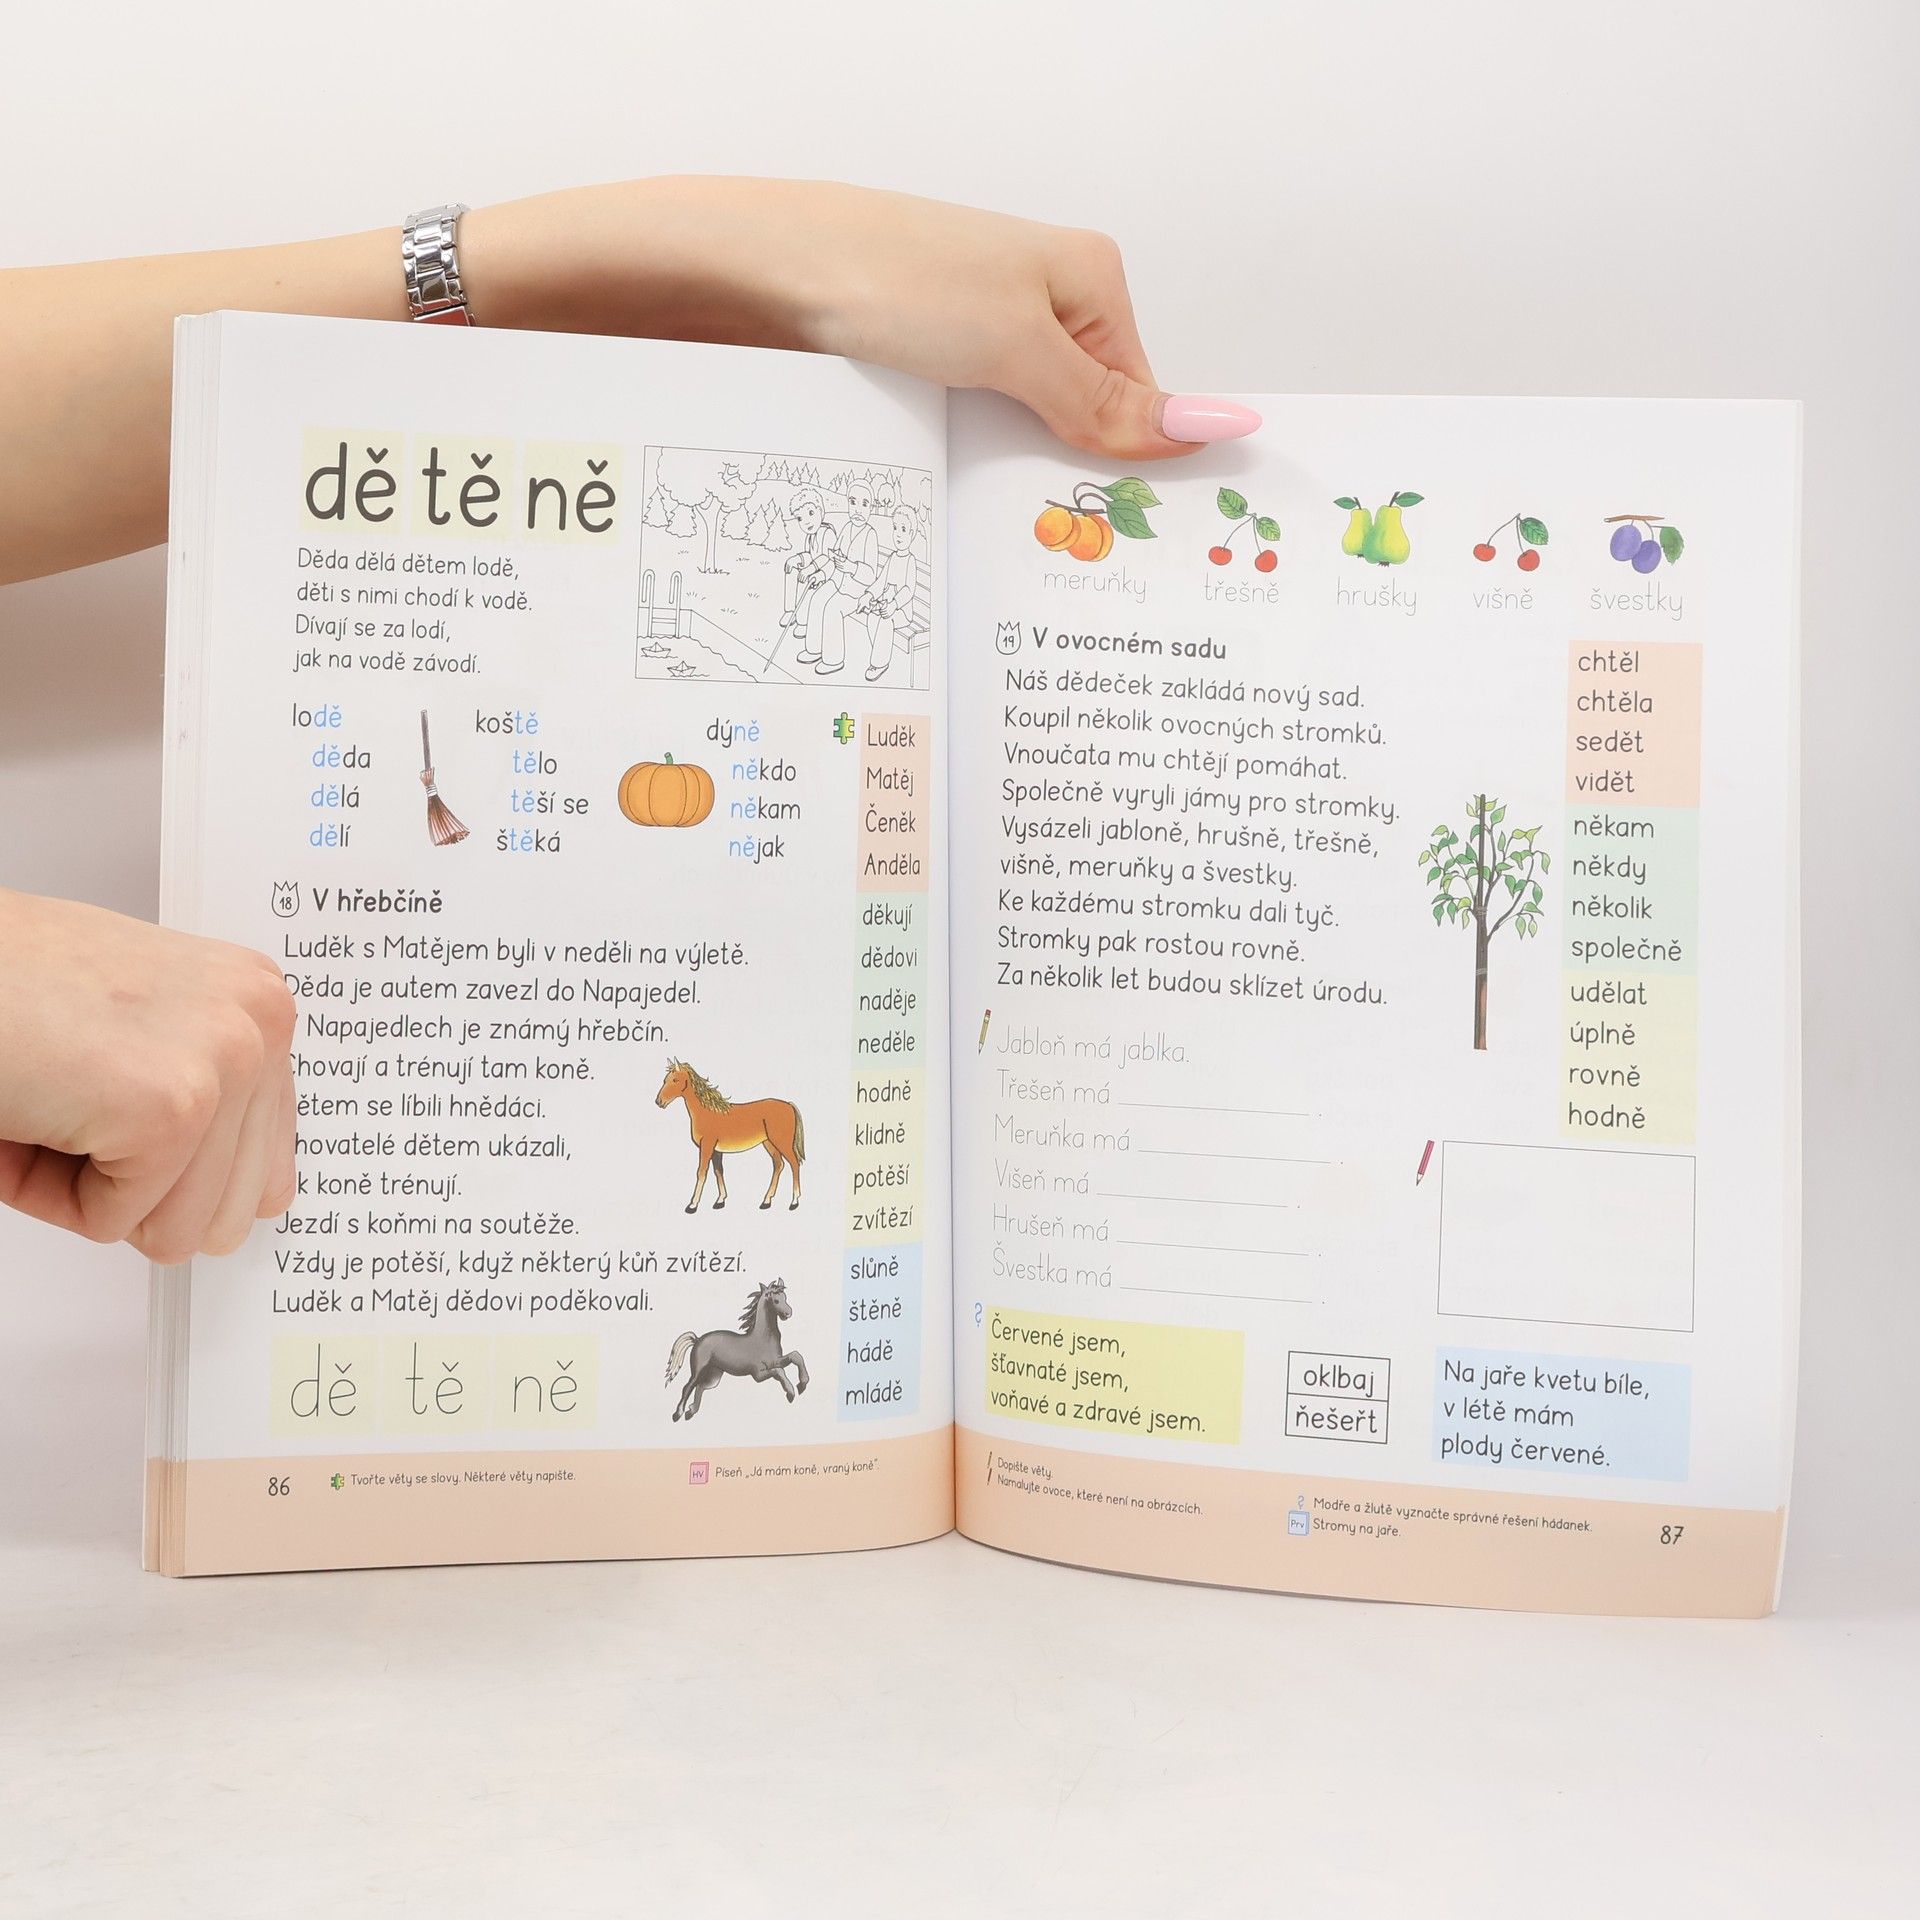 dě tě ně
Děda dělá dětem lodě,
děti s nimi chodí k vodě.
Dívají se za lodí,
jak na vodě závodí.
lodě
děda
dělá
dělí
koště
tělo
těší se
štěká
dýně
někdo
někam
nějak
Luděk
Matěj
Čeněk
Anděla
děkují
dědovi
naděje
neděle
hodně
klidně
potěší
zvítězí
slůně
štěně
hádě
mládě
18 V hřebčíně
Luděk s Matějem byli v neděli na výletě.
Děda je autem zavezl do Napajedel.
Napajedlech je známý hřebčín.
Chovají a trénují tam koně.
ětem se líbili hnědáci.
hovatelé dětem ukázali,
k koně trénují.
Jezdí s koňmi na soutěže.
Vždy je potěší, když některý kůň zvítězí.
Luděk a Matěj dědovi poděkovali.
dě tě ně
86
Tvořte věty se slovy. Některé věty napište.
HV Píseň „Já mám koně, vraný koně“.
meruňky třešně hrušky višně švestky
19 V ovocném sadu
Náš dědeček zakládá nový sad.
Koupil několik ovocných stromků.
Vnoučata mu chtějí pomáhat.
Společně vyryli jámy pro stromky.
Vysázeli jabloně, hrušně, třešně,
višně, meruňky a švestky.
Ke každému stromku dali tyč.
Stromky pak rostou rovně.
Za několik let budou sklízet úrodu.
chtěl
chtěla
sedět
vidět
někam
někdy
několik
společně
udělat
úplně
rovně
hodně
Jabloň má jablka.
Třešeň má ____________ .
Meruňka má ____________ .
Višeň má ____________ .
Hrušeň má ____________ .
Švestka má ____________ .
? Červené jsem,
šťavnaté jsem,
voňavé a zdravé jsem.
oklbaj
ňešeřt
Na jaře kvetu bíle,
v létě mám
plody červené.
Dopište věty.
Namalujte ovoce, které není na obrázcích.
? Modře a žlutě vyznačte správné řešení hádanek.
Prv Stromy na jaře.
87